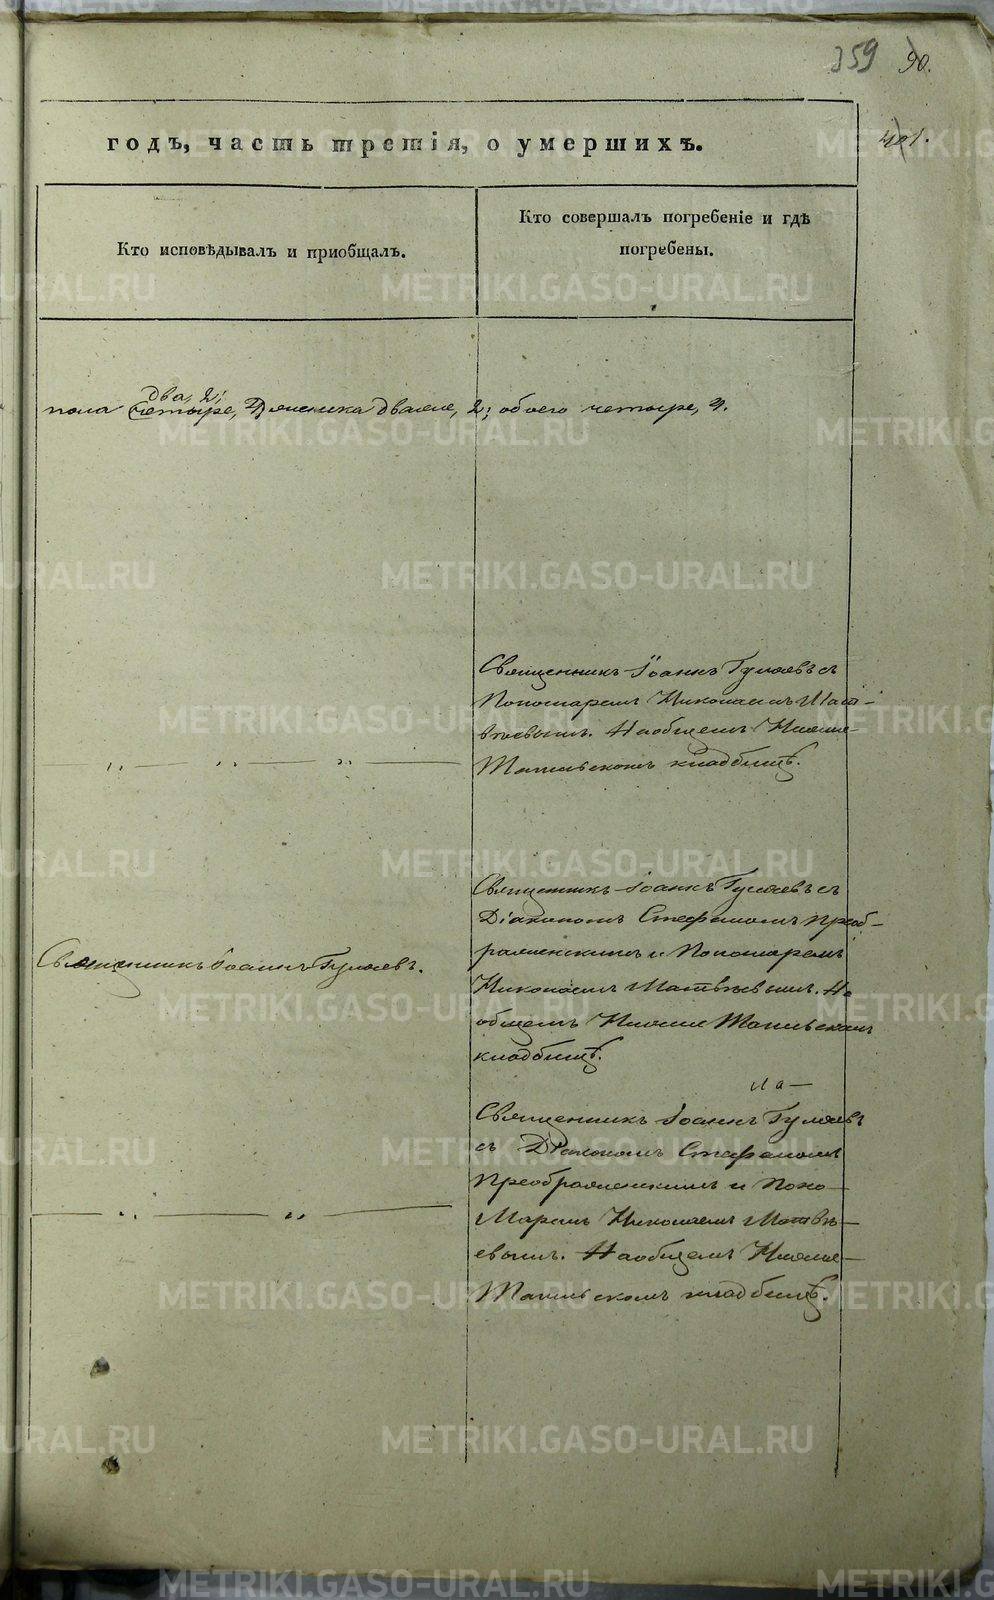 359 90.
401.
годъ, часть третія, о умершихъ.
Кто исповѣдывалъ и приобщалъ.
Кто совершалъ погребеніе и гдѣ
погребены.
два, 2;
пола четыре, женска двое, 2; обоего четыре, 4.
Священникъ Іоаннъ Гуляевъ съ
Пономаремъ Николаемъ Мат-
вѣевымъ. На общемъ Нижне-
Тагильскомъ кладбищѣ.
Священникъ Іоаннъ Гуляевъ съ
Діакономъ Стефаномъ Преоб-
раженскимъ и Пономаремъ
Священникъ Іоаннъ Гуляевъ.
Николаемъ Матвѣевымъ. На
общемъ Нижне Тагильскомъ
кладбищѣ.
на—
Священникъ Іоаннъ Гуляевъ
съ Діакономъ Стефаномъ
Преображенскимъ и Поно-
маремъ Николаемъ Матвѣ-
евымъ. На общемъ Нижне-
Тагильскомъ кладбищѣ.
METRIKI.GASO-URAL.RU